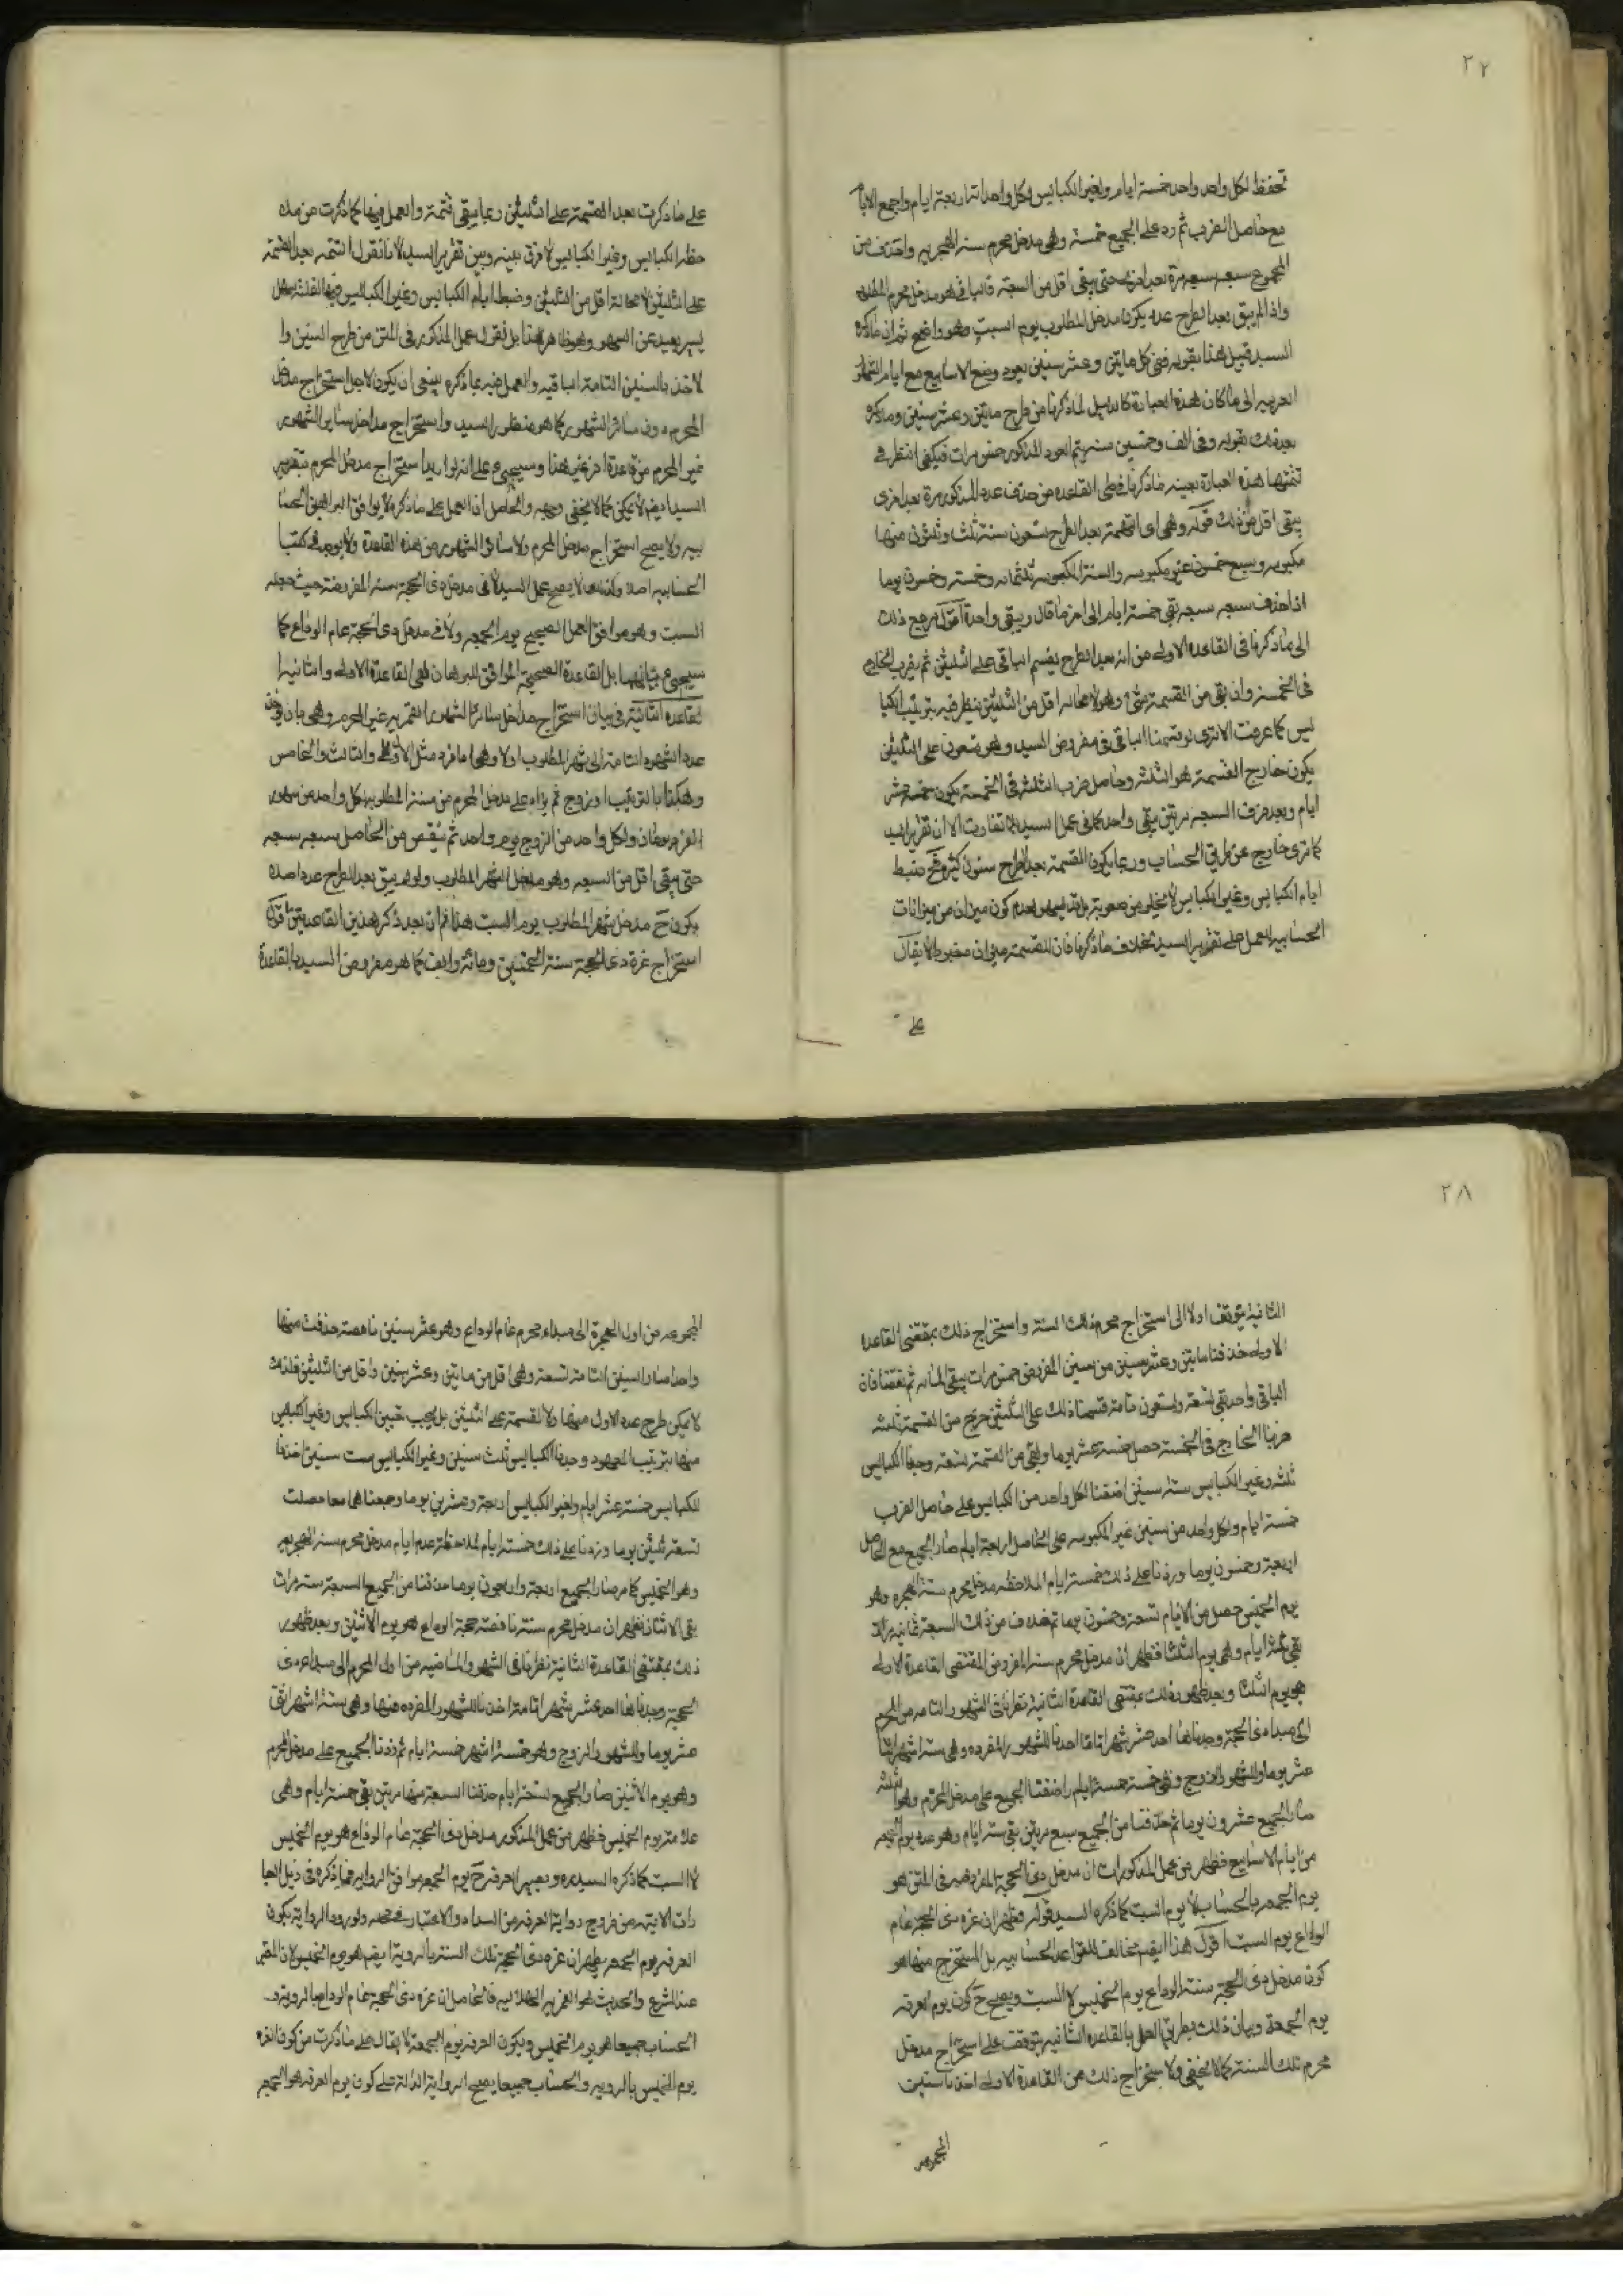 ٢٢
تحفظ لكل واحد واحد خمسة ايام ولغير الكبايس لكل واحد اربعة ايام واجمع الايام
مع حاصل الضرب ثم زد على الجميع خمسة وهي مدخل محرم سنه الهجريه واحذف من
المجموع سبعه سبعه مرة بعد اخرى حتى يبقى اقل من السبعة فالباقي هو مدخل محرم المطلوب
واذا لم يبق بعد الطرح عدد يكون مدخل المطلوب يوم السبت وهو واضح ثم ان ما ذكره
السيد قبيل هذا بقوله ففي كل مايتين وعشر سنين يعود وضع الاسابيع مع ايام الشهور
العربيه الى ما كان فهذه العبارة كالدليل لما ذكرنا من طرح مايتين وعشر سنين وما ذكره
بعد ذلك بقوله وفي الف وخمسين سنه يتم العود المذكور خمس مرات فيكفي النظر في
تتمتها هذه العبارة بعينه ما ذكرنا في طي القاعده من حذف عدد المذكور مرة بعد اخرى
يبقى اقل من ذلك قوله وهي اى التتمة بعد الطرح تسعون سنة ثلث وثلثون منها
مكبوسه وسبع خمسون غير مكبوسه والسنة المكبوسه ثلثمائه وخمسة وخمسون يوما
اذا حذف سبعه سبعه بقي خمسة ايام الى اخر ما قال ويبقى واحدة اقول مرجع ذلك
الى ما ذكرنا في القاعده الاولى من انه بعد الطرح يقسم الباقي على الثلثين ثم يضرب الخارج
في الخمسة وان بقي من القسمة شئ وهو لا محاله اقل من الثلثين ينظر فيه بترتيب الكبا
يس كما عرفت الا ترى لو قسمنا الباقي في مفروض السيد وهو تسعون على الثلثين
يكون خارج القسمة هو الثلثه وحاصل ضرب الثلثه في الخمسة يكون خمسة عشر
ايام وبعد حذف السبعه مرتين يبقى واحد كما في عمل السيد فلا تفاوت الا ان تقرير السيد
كما ترى خارج عن طريق الحساب وربما يكون القسمة بعد الطرح سنون كثيرة فح ضبط
ايام الكبايس وغير الكبايس لا يخلو من صعوبة بل قد يسهو لعدم كون ميزان من ميزانات
الحسابيه للعمل على تقرير السيد بخلاف ما ذكرنا فان للقسمة ميزان مضبوط لا يقال
على
على ما ذكرت بعد القسمة على الثلثين ربما يبقى تتمة والعمل فيها كما ذكرت من ملا
حظه الكبايس وغير الكبايس لا فرق بينه وبين تقرير السيد لانا نقول التتمه بعد القسمة
على الثلثين لا محالة اقل من الثلثين وضبط ايام الكبايس وغير الكبايس فيها لقلته سهل
يسير بعيد عن السهو وهو ظاهر هذا بل نقول عمل المذكور في المتن من طرح السنين وا
لاخذ بالسنين التامة الباقيه والعمل فيه بما ذكره ينبغي ان يكون لاجل استخراج مدخل
المحرم دون سائر الشهور كما هو منظور السيد واستخراج مداخل ساير الشهور
غير المحرم من قاعدة اخر غير هذا وسيجيء على انه لو اريد استخراج مدخل المحرم بتقرير
السيد ايضا لا يمكن كما لا يخفى وجهه والحاصل ان العمل على ما ذكره لا يوافق البراهين الحسا
بيه ولا يصح استخراج مدخل المحرم ولا سائر الشهور من هذه القاعدة ولا يوجد في كتب ا
لحسابيه اصلا ولذلك لا يصح عمل السيد لا في مدخل ذي الحجة سنه المفروضة حيث جعله
السبت وهو موافق العمل الصحيح يوم الجمعه ولا في مدخل ذي الحجة عام الوداع كما
سيجيء بيانهما بل القاعدة الصحيحة الموافق للبرهان فهي القاعدة الاولى والثانيه ا
لقاعدة الثانية في بيان استخراج مداخل سائر الشهور القمريه غير المحرم وهي بان يؤخذ
عدد الشهور التامة الى شهر المطلوب اولا وهي اما فرد مثل الاول والثالث والخامس
وهكذا بالترتيب او زوج ثم يزاد على مدخل المحرم من سنة المطلوبه لكل واحد من شهور
الفرد يومان ولكل واحد من الزوج يوم واحد ثم ينقص من الحاصل سبعه سبعه
حتى يبقى اقل من السبعه وهو مدخل الشهر المطلوب ولو لم يبق بعد الطرح عدد اصلا
يكون ح مدخل شهر المطلوب يوم السبت هذا فان بعد ذكر هذين القاعدتين اقول
استخراج غرة ذي الحجة سنة الخمسين ومائة والف كما هو مفروض السيد بالقاعدة
٢٨
الثانية يتوقف اولا الى استخراج محرم ذلك السنة واستخراج ذلك بمقتضى القاعدة
الاولى حذفنا مايتين وعشر سنين من سنين المفروض خمس مرات يبقى المائه ثم نقصنا من
الباقي واحد بقي تسعة وتسعون تامة قسمنا ذلك على الثلثين خرج من القسمة ثلثه
ضربنا الخارج في الخمسة حصل خمسة عشر يوما وبقي من القسمة تسعة وجدنا الكبايس
ثلثه وغير الكبايس ستة سنين اضفنا لكل واحد من الكبايس على حاصل الضرب
خمسة ايام ولكل واحد من سنين غير المكبوسه على الحاصل اربعة ايام صار الجميع مع الحاصل
اربعة وخمسون يوما وزدنا على ذلك خمسة ايام لملاحظه مدخل محرم سنة الهجره وهو
يوم الخميس حصل من الايام تسعة وخمسون يوما ثم حذف من ذلك السبعة ثمانيه مرات
بقي ثلثة ايام وهي يوم الثلثا فظهر ان مدخل محرم سنه المفروض المقتضى القاعدة الاولى
هو يوم الثلثا وبعد ظهور ذلك بمقتضى القاعدة الثانية نظرنا في الشهور التامه من المحرم
الى مبداء ذي الحجة وجدناها احد عشر شهرا تاما اخذنا للشهور المفرده وهي ستة اشهر اثنا
عشر يوما وللشهور الزوج وهي خمسة خمسة ايام اضفنا الجميع على مدخل المحرم وهو الثلثه
صار الجميع عشرون يوما ثم حذفنا من الجميع سبع مرتين بقي ستة ايام وهو عدد يوم الجمعه
من ايام الاسابيع فظهر من عمل المذكورات ان مدخل ذي الحجة المفروضه في المتن هو
يوم الجمعه بالحساب لا يوم السبت كما ذكره السيد قوله فظهر ان غره ذي الحجة عام
الوداع يوم السبت اقول هذا ايضا مخالف للقواعد الحسابيه بل المستخرج منها هو
كون مدخل ذي الحجة سنة الوداع يوم الخميس لا السبت ويصح ح كون يوم العرفه
يوم الجمعة وبيان ذلك بطريق العمل بالقاعده الثانيه يتوقف على استخراج مدخل
محرم تلك السنة كما لا يخفى ولاستخراج ذلك من القاعدة الاولى اخذنا سنين
المجموعه
المجموعه من اول الهجرة الى مبداء محرم عام الوداع وهو عشر سنين ناقصة حذفت منها
واحدا صار السنين التامة تسعة وهي اقل من مايتين وعشر سنين واقل من الثلثين فلذلك
لا يمكن طرح عدد الاول منها ولا القسمة على الثلثين بل يجب تعيين الكبايس وغير الكبايس
منها بترتيب المعهود وجدنا الكبايس ثلث سنين وغير الكبايس ست سنين اخذنا
للكبايس خمسة عشر ايام ولغير الكبايس اربعة وعشرين يوما وجمعناهما معا حصلت
تسعة ثلثين يوما وزدنا على ذلك خمسة ايام لملاحظة عدم ايام مدخل محرم سنه الهجريه
وهو الخميس كما مر صار الجميع اربعة واربعون يوما حذفنا من الجميع السبعة ستة مرات
بقي الاثنان فظهر ان مدخل محرم سنة ناقصة حجة الوداع هو يوم الاثنين وبعد ظهور
ذلك بمقتضى القاعدة الثانية نظرنا في الشهور الماضيه من اول المحرم الى مبداء ذي
الحجة وجدناها احد عشر شهرا تامة اخذنا للشهور المفرده منها وهي ستة اشهر اثنى
عشر يوما وللشهور الزوج وهو خمسة اشهر خمسة ايام ثم زدنا الجميع على مدخل المحرم
وهو يوم الاثنين صار الجميع تسعة ايام حذفنا السبعة منها مرتين بقي خمسة ايام وهي
علامة يوم الخميس فظهر من عمل المذكور مدخل ذي الحجة عام الوداع هو يوم الخميس
لا السبت كما ذكره السيد ره ويصير العرفه ح يوم الجمعه موافق الروايه فما ذكره في ذيل العبا
رات الاتيه من خروج رواية العرفه من السداد والاعتبار وورود الرواية بكون
العرفه يوم الجمعه يظهر ان غره ذي الحجة تلك السنة بالروية ايضا هو يوم الخميس لان المعتبر
عند الشرع والحديث هو الغره الهلاليه فالحاصل ان غره ذي الحجة عام الوداع بالروية و
الحساب جميعا هو يوم الخميس ويكون العرفه يوم الجمعة لا يقال على ما ذكرت من كون الغره
يوم الخميس بالرويه والحساب جميعا يصح الرواية الدالة على كون يوم العرفه هو الجمعه